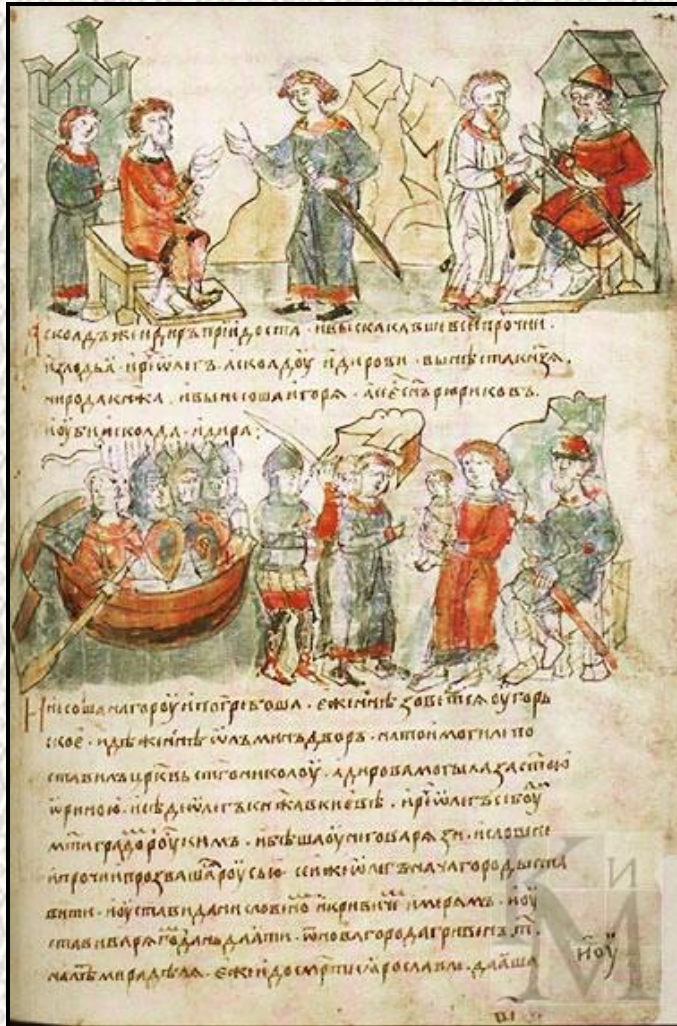 Асколдъ же и диръ прїидоста · и выскакавше вси прочии ·
из лодьа · и реⷱ ѡлегъ · асколдоу и дирови · вы нѣста кнѧзѧ ·
ни рода кнѧжа · и вынесоша игорѧ · а се е҃ сн҃ъ рюриковъ ·
и оуби асколда · и дира :
И несоша на гороу и погребоша · еже ннѣ зоветсѧ оугорь
ское · идѣже ннѣ ѡлъминъ дворъ · на тои могиле по
ставилъ црк҃вь ст҃го николоу · а дирова могыла за ст҃ою
ѡриною · и сѣде ѡлегъ кнѧжа в киевѣ · и реⷱ ѡлегъ се боуⷣ
мт҃и градоⷨ роуⷭкимъ · и бѣша оу него варѧзи · и словене
и прочии прозвашаⷭ роусью · се и же ѡлегъ нача городы ста
вити · и оустави дани словеноⷨ и кривичеⷨ и мерѧмъ · и оу
стави варѧгоⷨ дань даати · ѿ новагорода гривенъ т҃ ·
на лѣⷮ мира дѣлѧ · еже и до смр҃ти ӕрославлѧ · даӕша
ноу
К И М